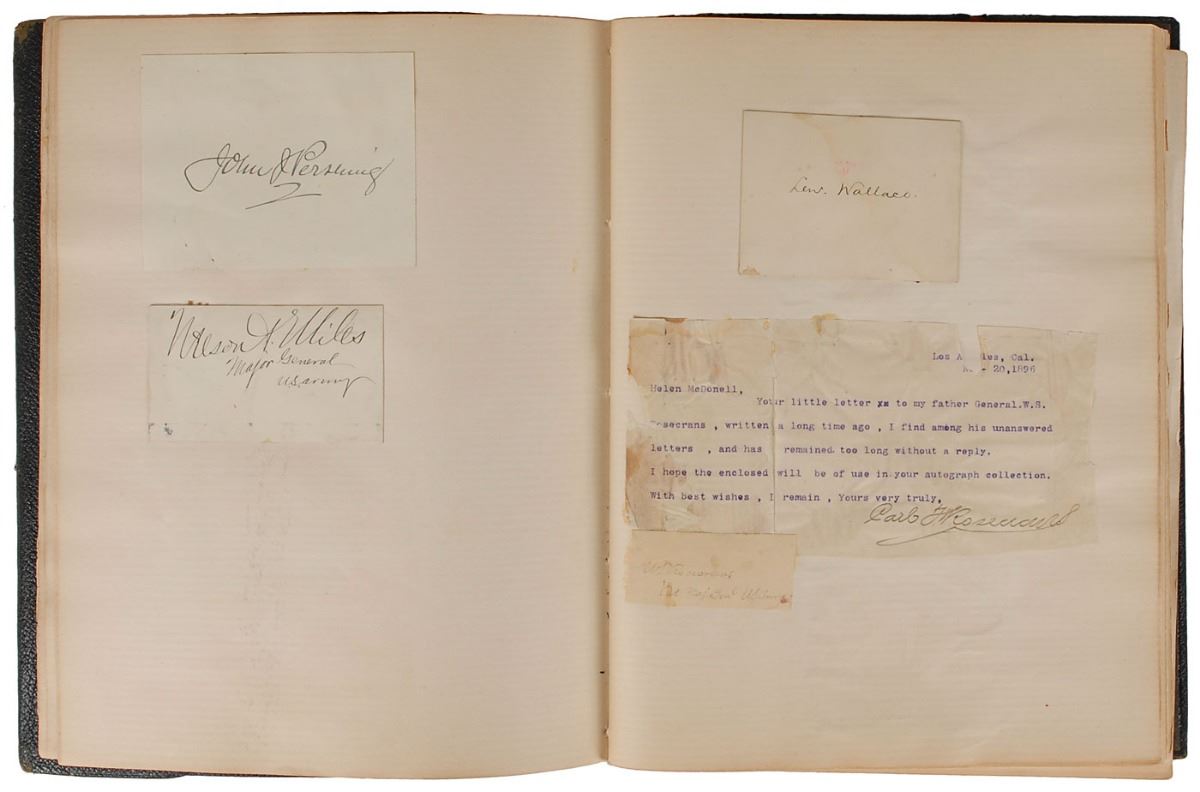 John J Pershing
Nelson A. Miles
Major General
U.S. army
Lew. Wallace.
Los A les, Cal.
- 20,1896
Helen McDonell,
Your little letter xx to my father General.W.S.
osecrans , written a long time ago , I find among his unanswered
letters , and has remained too long without a reply.
I hope the enclosed will be of use in your autograph collection.
With best wishes , I remain , Yours very truly,
Carl F Rosecrans
W S Rosecrans